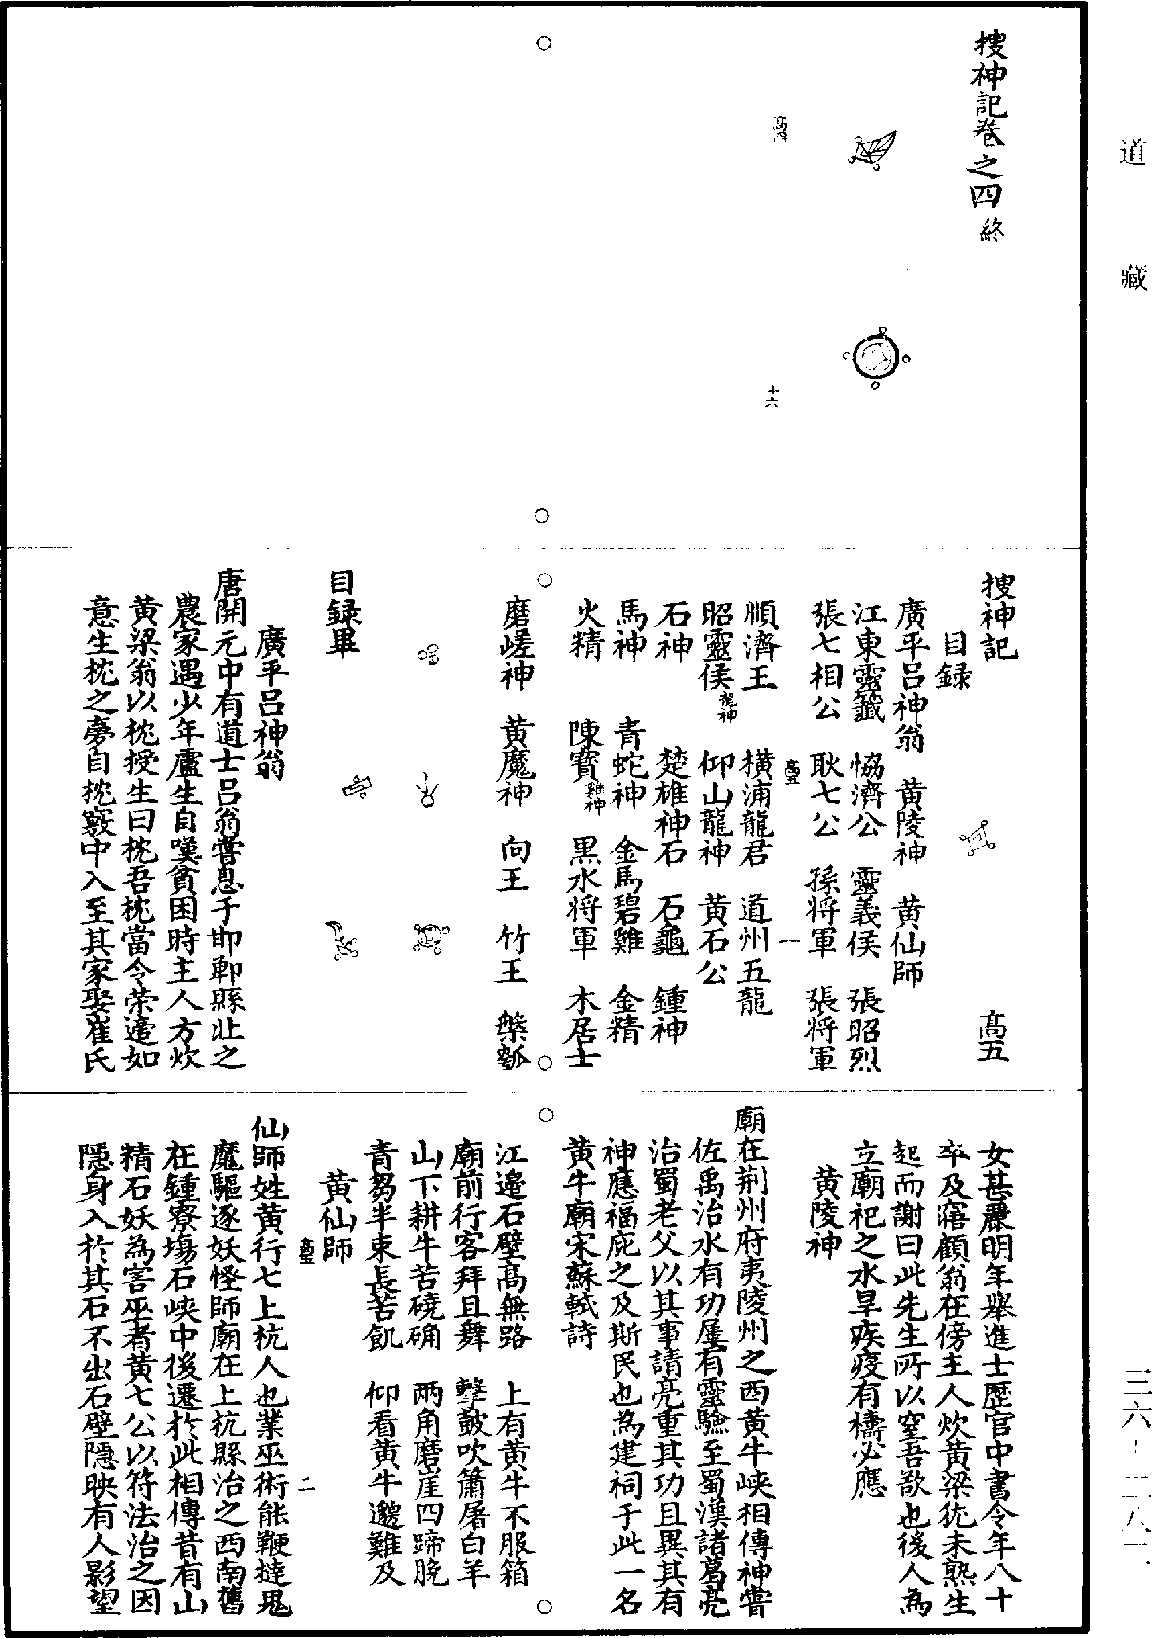 道藏
搜神記卷之四終
十六
搜神記
高五
目録
廣平呂神翁　黃陵神　黃仙師
江東靈籤　恊濟公　靈義侯　張昭烈
張七相公　耿七公　孫將軍　張將軍
高五
一
順濟王　橫浦龍君　道州五龍
昭靈侯龍神　仰山龍神　黃石公
石神　楚雄神石　石龜　鍾神
馬神　青蛇神　金馬碧雞　金精
火精　陳寶雞神　黑水將軍　木居士
磨嵯神　黃魔神　向王　竹王　槃瓠
目録畢
廣平呂神翁
唐開元中有道士呂翁嘗息于邯鄲縣北之
農家遇少年盧生自嘆貧困時主人方炊
黃梁翁以枕授生曰枕吾枕當令榮適如
意生枕之夢自枕竅中入至其家娶崔氏
女甚麗明年舉進士歷官中書令年八十
卒及寤顧翁在傍主人炊黃梁犹未熟生
起而謝曰此先生所以窒吾欲也後人為
立廟祀之水旱疾疫有禱必應
黃陵神
廟在荆州府夷陵州之西黃牛峽相傳神嘗
佐禹治水有功屢有靈驗至蜀漢諸葛亮
治蜀老父以其事請亮重其功且異其有
神應福庇之及斯民也為建祠于此一名
黃牛廟宋蘇軾詩
江邉石壁高無路　上有黃牛不服箱
廟前行客拜且舞　擊鼓吹簫屠白羊
山下耕牛苦磽确　兩角磨崖四蹄脕
青芻半束長苦飢　仰看黃牛邈難及
黃仙師
高五
二
仙師姓黃行七上杭人也業巫術能鞭撻鬼
魔驅逐妖怪師廟在上杭縣治之西南舊
在鍾寮塲石峽中後遷於此相傳昔有山
精石妖為害巫者黃七公以符法治之因
隱身入於其石不出石壁隱映有人影望